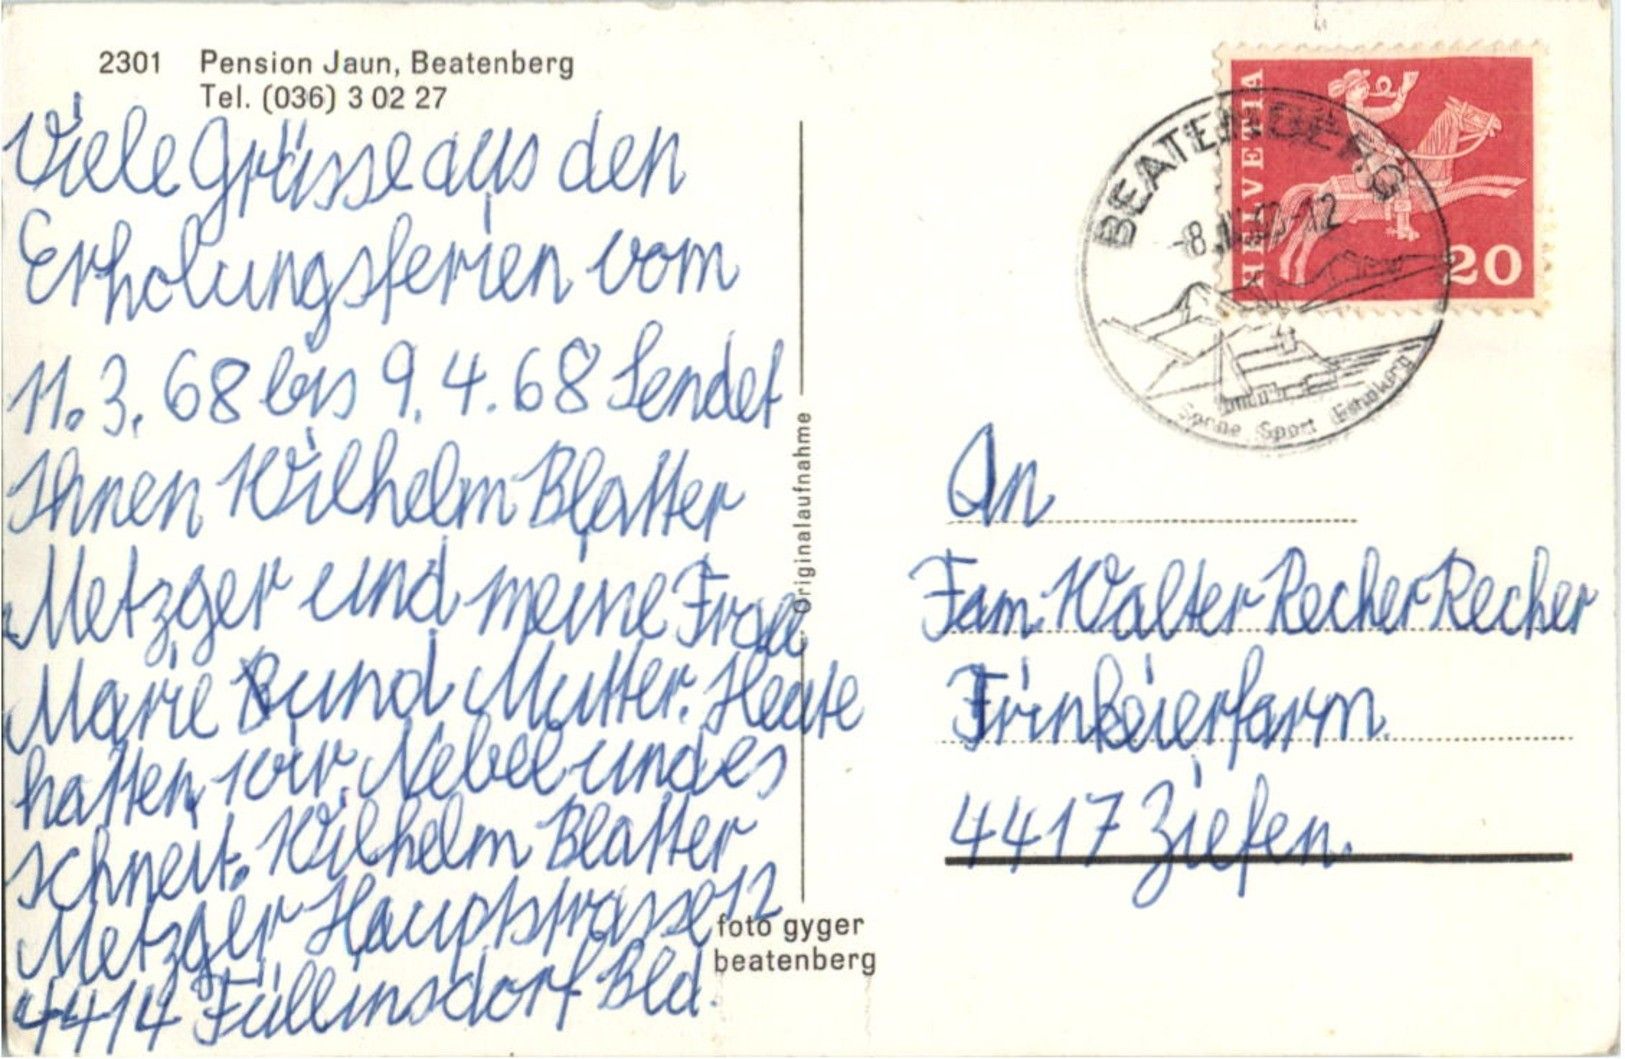 2301 Pension Jaun, Beatenberg
Tel. (036) 3 02 27
Viele Grüsse aus den
Erholungsferien vom
11.3.68 bis 9.4.68 Sendet
Ihnen Wilhelm Blatter
Metzger und meine Frau
Marie und Mutter. Heute
hatten wir Nebel und es
schneit. Wilhelm Blatter
Metzger Hauptstrasse 12
4414 Füllinsdorf Bld.
Originalaufnahme
foto gyger
beatenberg
HELVETIA
20
BEATENBERG
-8. -12
Sonne Sport Erholung
An
Fam. Walter Recher Recher
Trinkeierfarm.
4417 Ziefen.